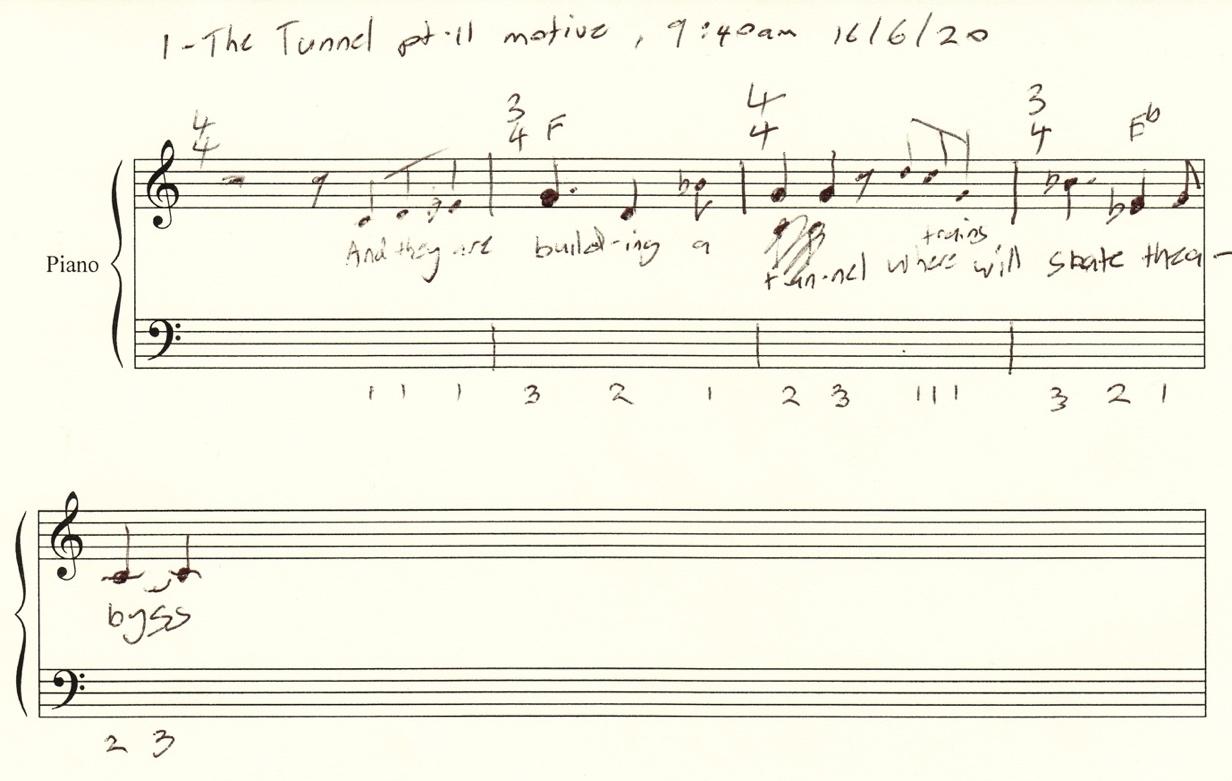 1-The Tunnel pt.11 motive, 9:40am 16/6/20
4 3 4 3
4 4 F 4 4 E♭
Piano
And they are build-ing a tun-nel where trains will skate the a-
1 1 1 3 2 1 2 3 1 1 1 3 2 1
byss
2 3